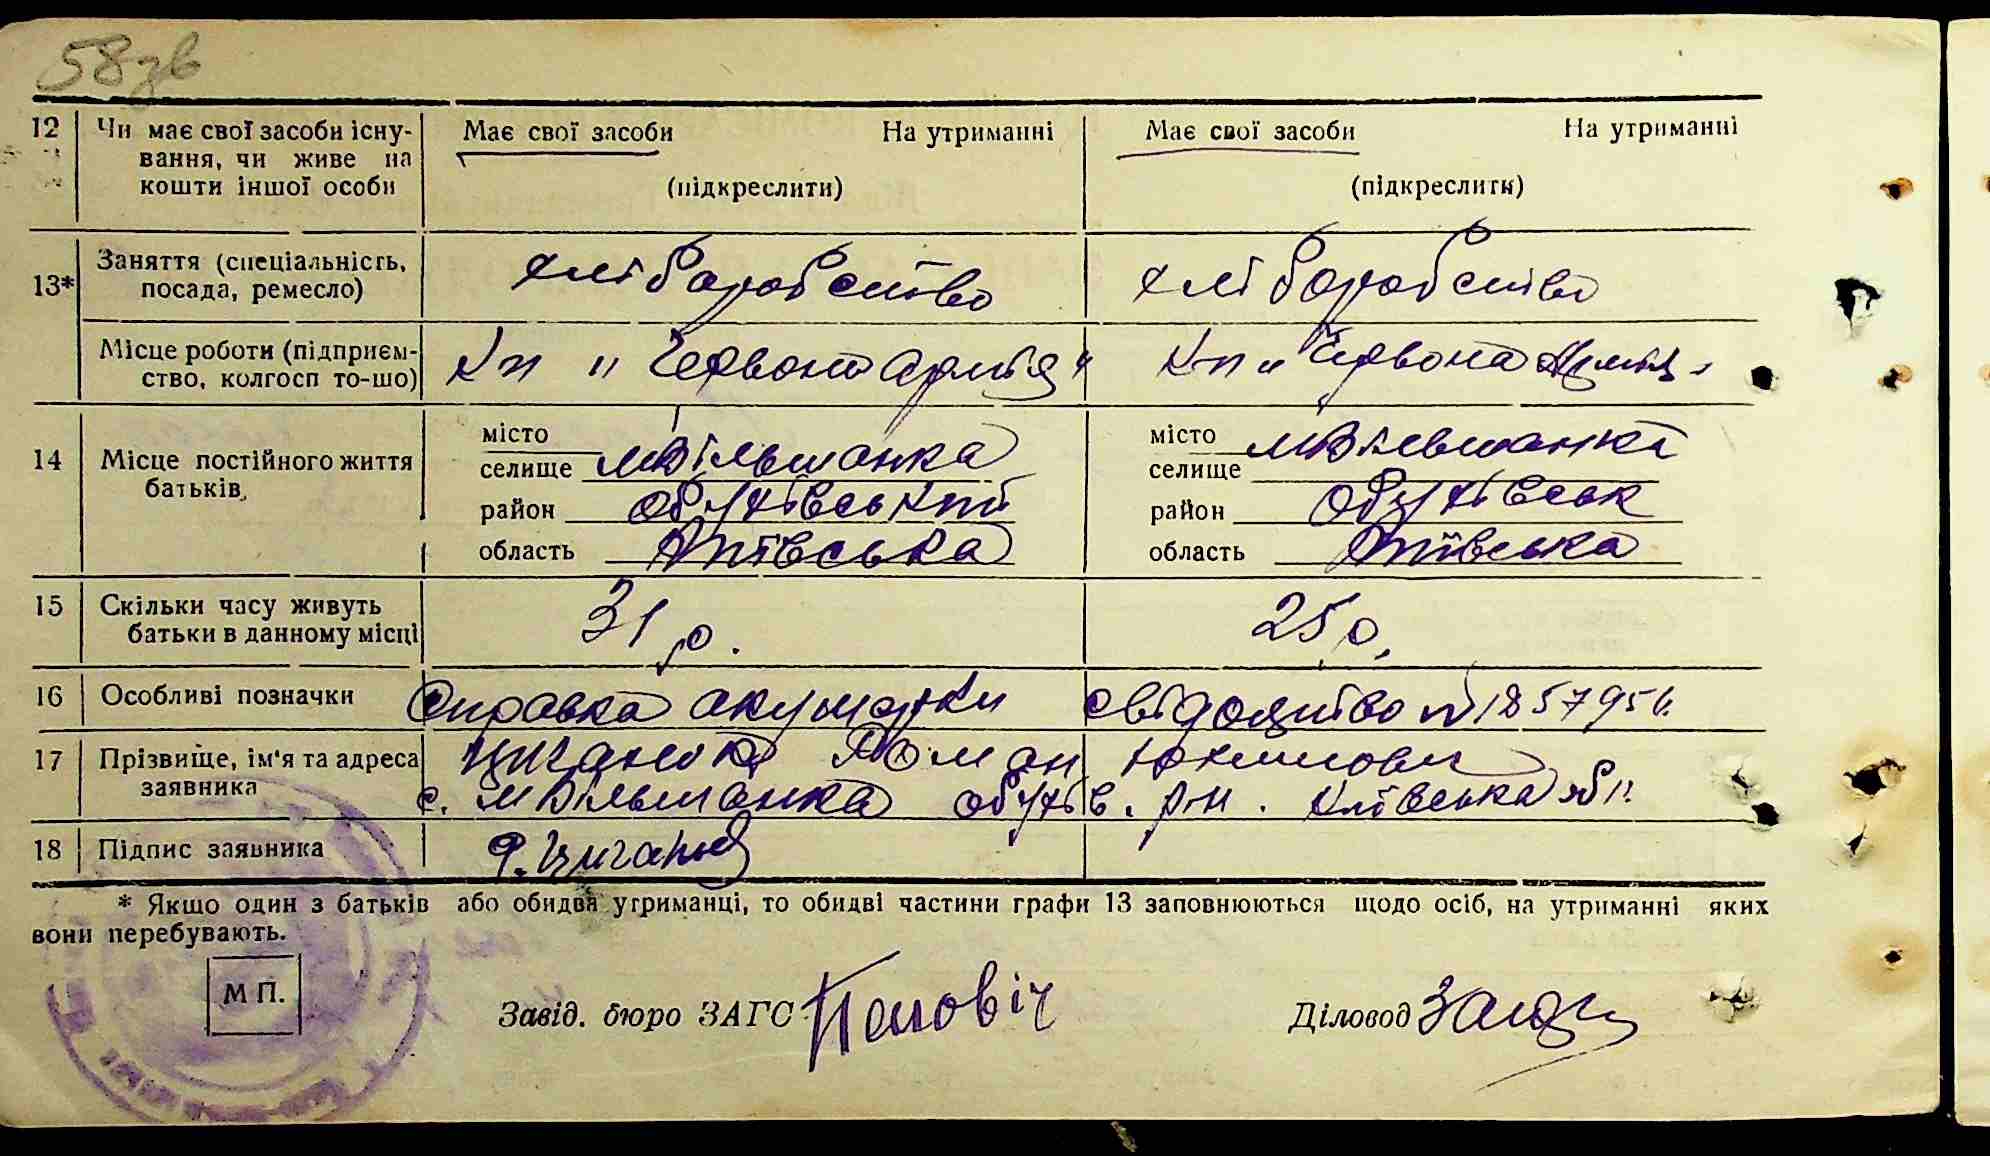 58зв
12 Чи має свої засоби існу- Має свої засоби На утриманні Має свої засоби На утриманні
вання, чи живе на
кошти іншої особи (підкреслити) (підкреслити)
13* Заняття (спеціальність, хліборобство хліборобство
посада, ремесло)
Місце роботи (підприєм- Кп „Червона армія" Кп „Червона Армія"
ство, колгосп то-що)
14 Місце постійного життя батьків,
місто
селище мВільшанка
район обухівський
область Київська
місто
селище мВільшанка
район обухівськ
область Київська
15 Скільки часу живуть 31 р. 25 р.
батьки в данному місці
16 Особливі позначки Справка акушерки свідоцтво № 1857956
17 Прізвище, ім'я та адреса Циганюк Роман
заявника с. мВільшанка обухів. р-н. Київська обл.
18 Підпис заявника Р. Циганюк
* Якщо один з батьків або обидва утриманці, то обидві частини графи 13 заповнюються щодо осіб, на утриманні яких
вони перебувають.
М П.
Завід. бюро ЗАГС Попович Діловод